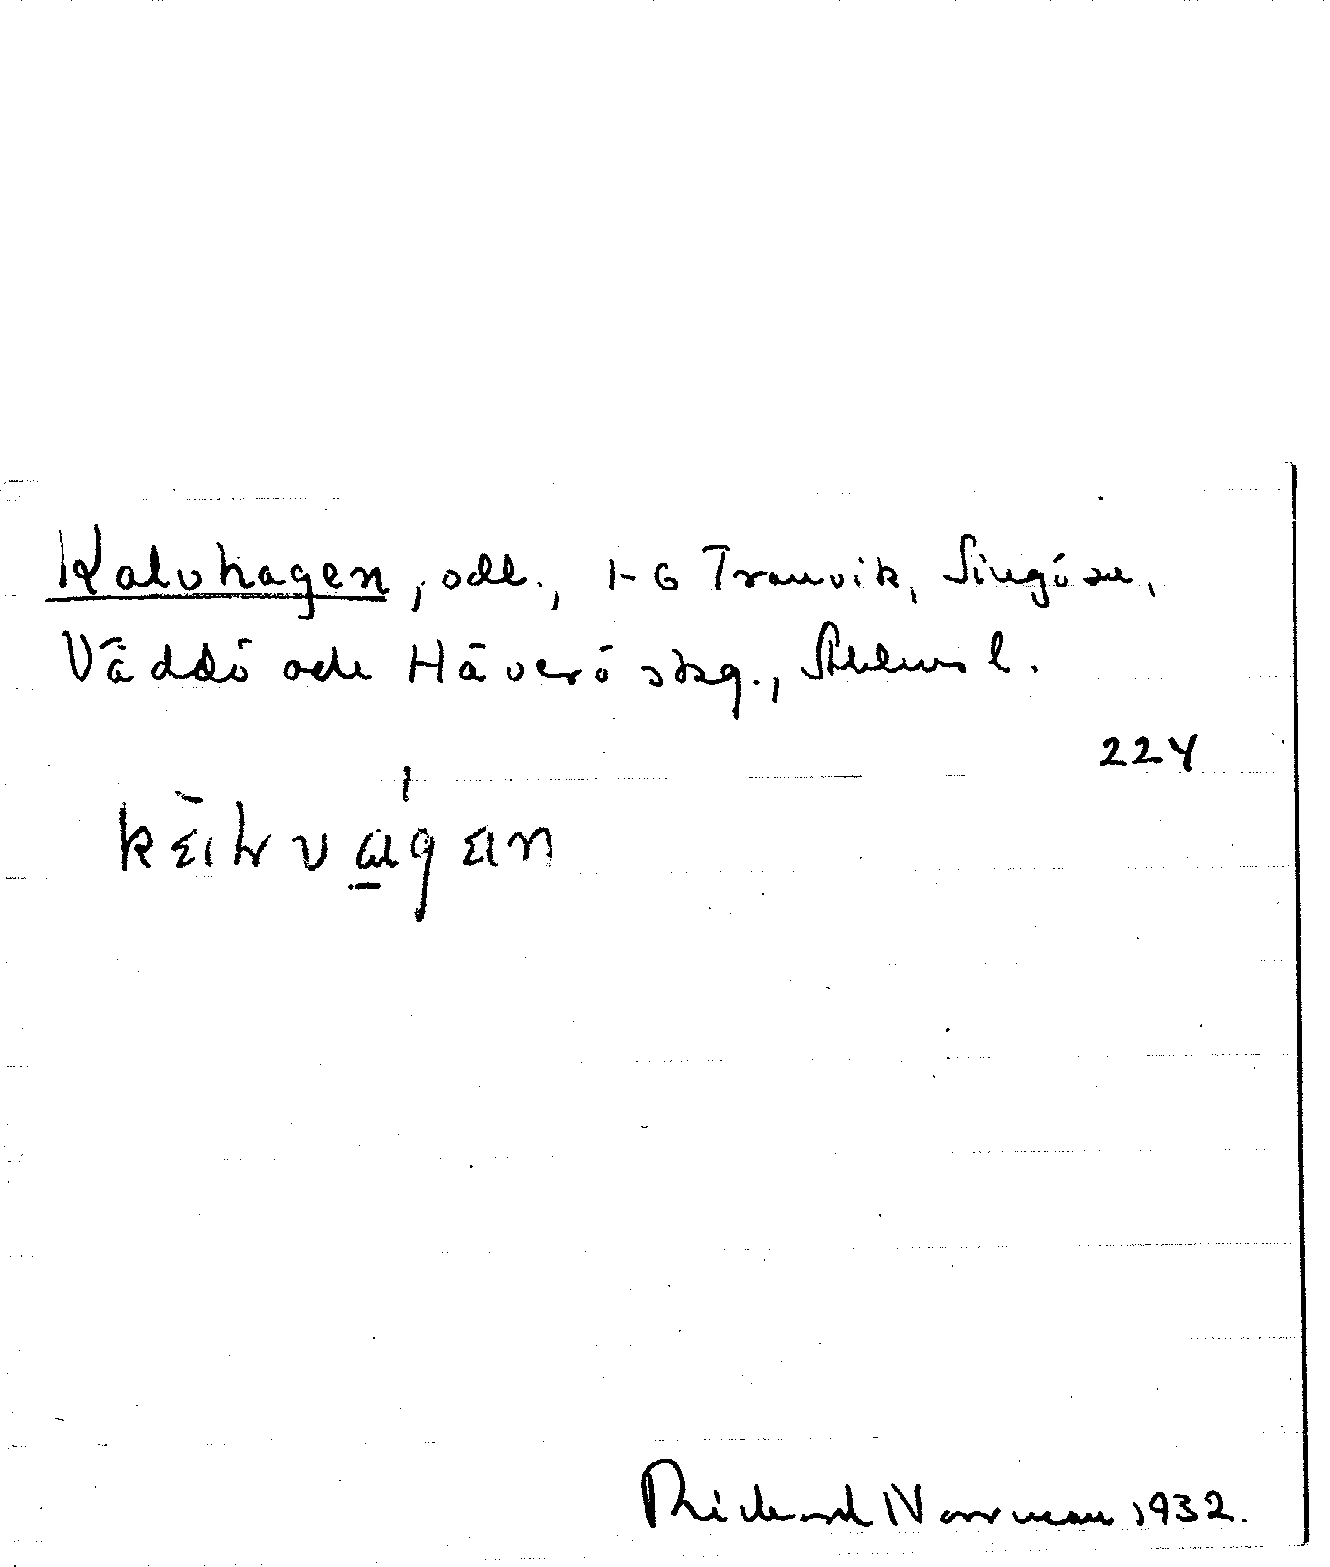 Kalvhagen, odl., 1-6 Tranvik, Singö sn,
Väddö och Häverö skg., Sthlms l.
224
Rickard Norrman 1932.